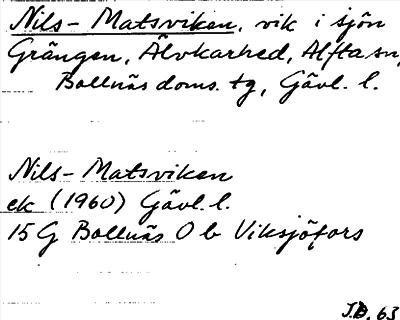 Nils-Matsviken, vik i sjön
Grängen, Älvkarhed, Alfta sn,
Bollnäs doms. tg, Gävl. l.
Nils-Matsviken
ek (1960) Gävl. l.
15 G Bollnäs O b Viksjöfors
J.B. 63